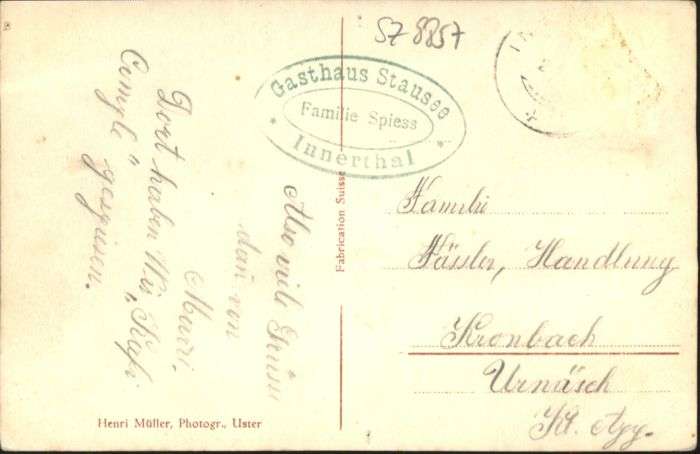 SZ 8857
Gasthaus Stausee
Familie Spiess
Innerthal
Dort haben Wir „Kafi
Complę" gespiesen.
Also viele Grüsse
dan von
Marri.
Fabrication Suisse
Familie
Fässler, Handlung
Kronbach
Urnäsch
Kt. App.
Henri Müller, Photogr., Uster